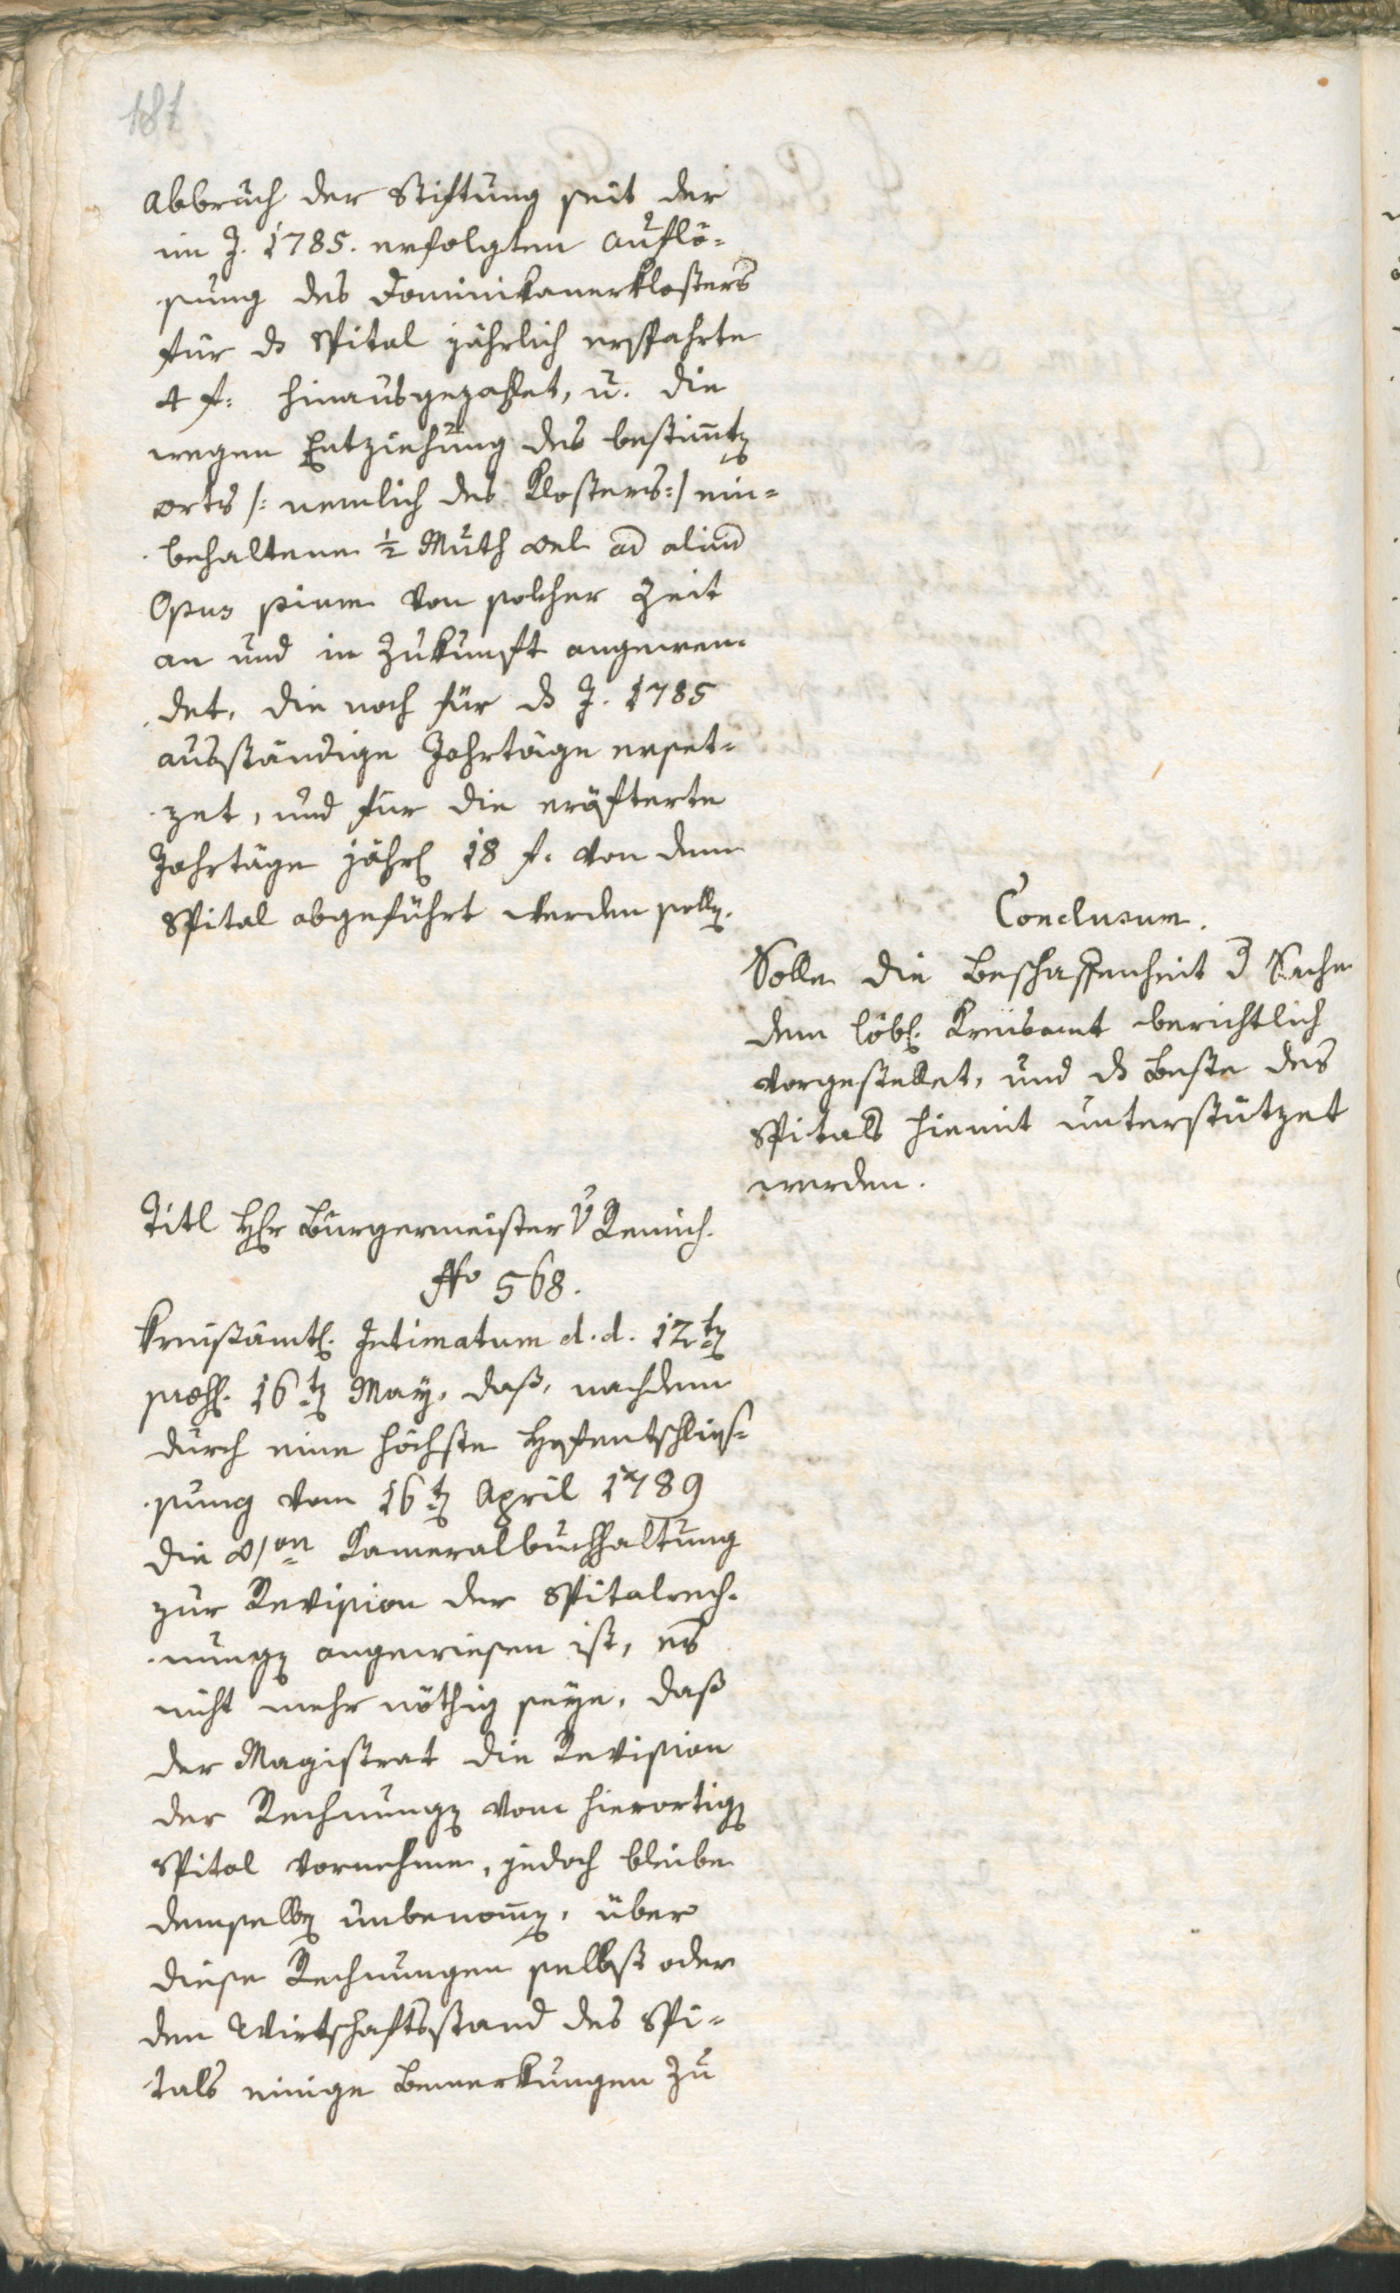 187
Abbruch der Stiftung seit der
im J. 1785. erfolgten Auflö-
sung des Dominikanerklosters
für ds Spital jährlich ersparte
4 f: hinausgezahlet, u. die
wegen Entziehung des bestimten
Orts /: nemlich des Klosters :/ ein-
behaltene ½ Muth Oel ad aliud
Opus pium von solcher Zeit
an und in Zukunft angewen-
det, die noch für ds J. 1785
ausständige Jahrtäge erset-
zet, und für die eräfterte
Jahrtäge jährl 18 f. von dem
Spital abgeführt werden solle.
Conclusum.
Solle die Beschaffenheit d Sache
dem löbl. Kreisamt berichtlich
vorgestellet, und ds Beste des
Spitals hiemit unterstützet
werden.
Titl Hr Bürgermeister v Remich.
No 568.
Kreisämtl. Intimatum d. d. 12ten
præs. 16ten May, daß, nachdem
durch eine höchste Hofentschlies-
sung vom 16ten April 1789
die Kameralbuchhaltung
zur Revision der Spitalrech-
nungen angewiesen ist, es
nicht mehr nöthig seye, daß
der Magistrat die Revision
der Rechnungen vom hierortigen
Spital vornehme, jedoch bleibe
demselben unbenommen, über
diese Rechnungen selbst oder
den Wirtschaftsstand des Spi-
tals einige Bemerkungen zu